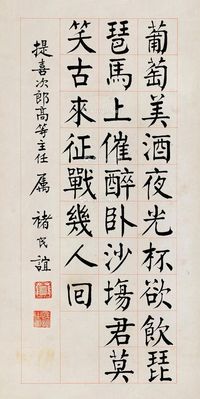 葡萄美酒夜光杯欲飲琵
琶馬上催醉臥沙場君莫
笑古來征戰幾人回
提喜次郎高等主任 属 褚民誼